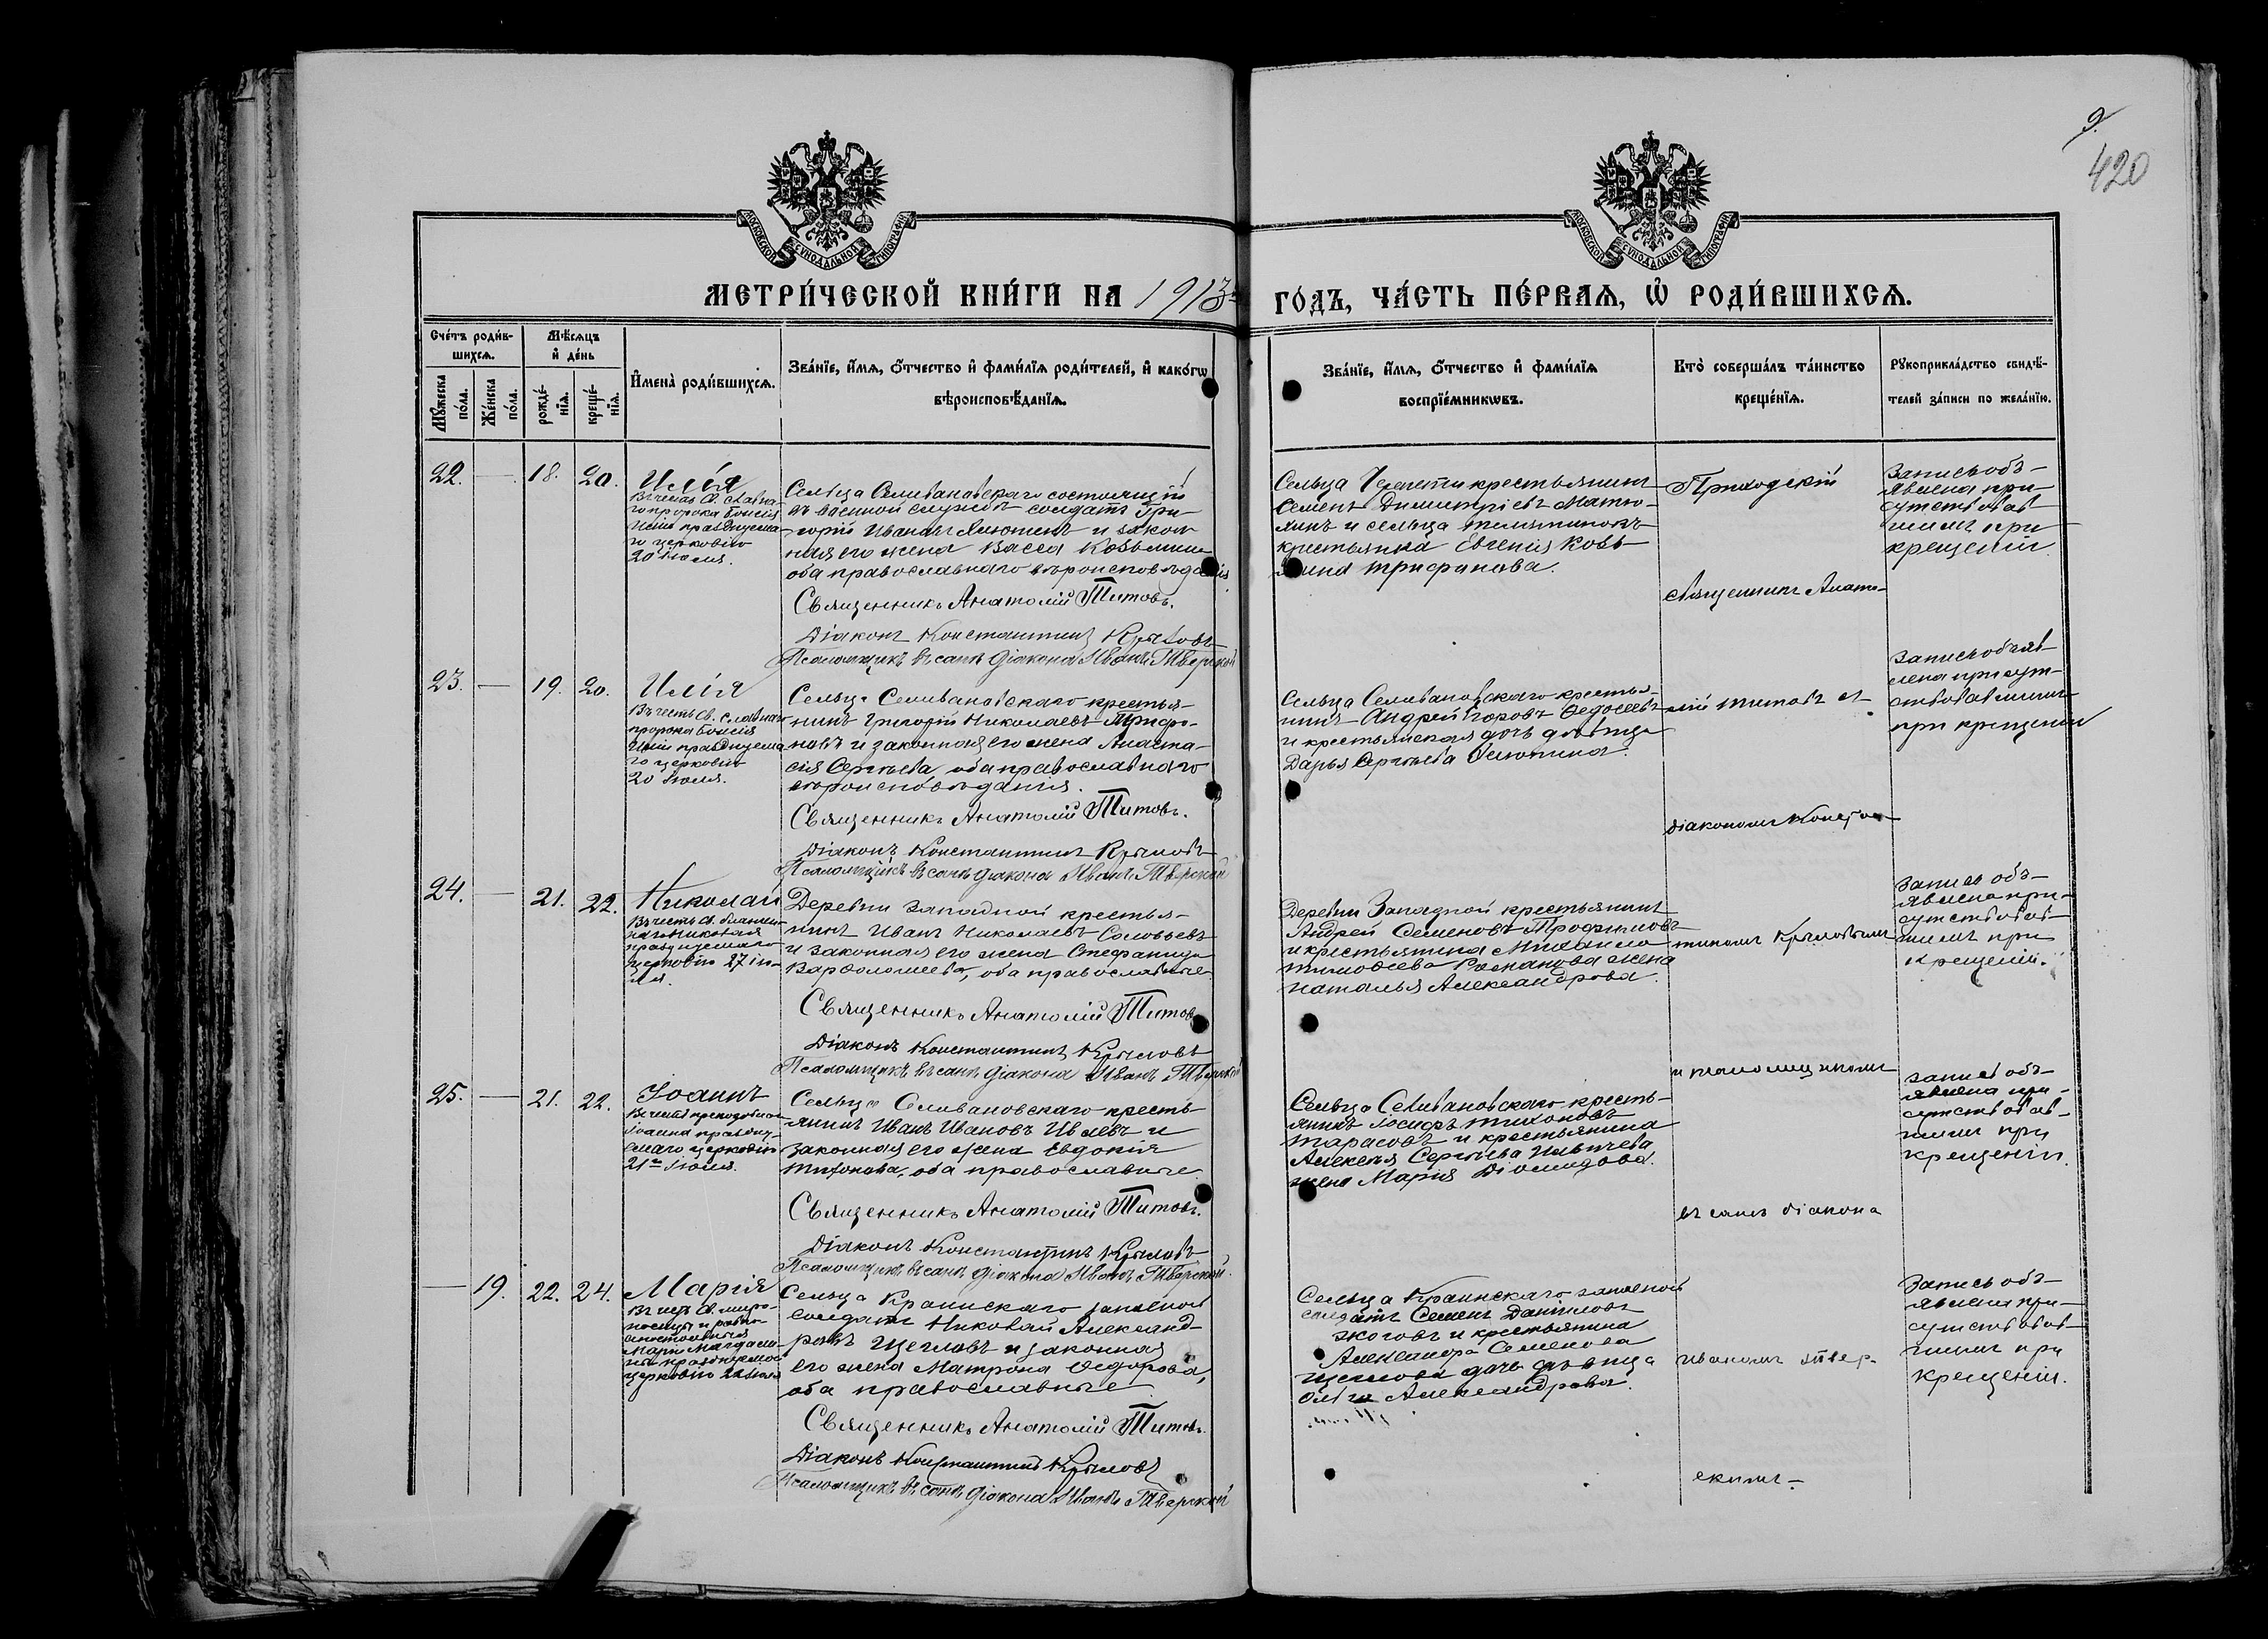 9.
420
МОСКОВСКОЙ СѴНОДАЛЬНОЙ ТИПОГРАФІИ
МОСКОВСКОЙ СѴНОДАЛЬНОЙ ТИПОГРАФІИ
МЕТРИ́ЧЕСКОЙ КНИ́ГИ НА 1913 ГО́ДЪ, ЧА́СТЬ ПЕ́РВАЯ, Ѡ҆ РОДИ́ВШИХСЯ.
Сче́тъ роди́в-
шихся.
Мѣ́сяцъ
и҆ де́нь
Мꙋ́жеска по́ла.
Же́нска по́ла.
рожде́-
нїѧ.
креще́-
нїѧ.
И҆мена̀ роди́вшихся.
Зва́нїе, и҆́мя, ѻ҆́тчество и҆ фами́лїя роди́телей, и҆ како́гѡ
вѣроисповѣ́данїя.
Зва́нїе, и҆́мя, ѻ҆́тчество и҆ фами́лїя
воспрїе́мникѡвъ.
Кто̀ соверша́лъ та́инство
креще́нїя.
Рꙋкоприкла́дство свидѣ́-
телей за́писи по жела́нїю.
22. — 18. 20.
Илія
Въ честь св. славна-
го пророка Божія
Иліи празднуема-
го церковію
20 Іюля.
Сельца Селивановскаго состоящій
въ военной службѣ солдатъ Гри-
горій Ивановъ и закон-
ная его жена Васса Козьмина
оба православнаго вѣроисповѣданія
Священникъ Анатолій Титовъ.
Діаконъ Константинъ Крыловъ
Псаломщикъ въ санѣ діакона Иванъ Тверской
Сельца Черепети крестьянинъ
Семенъ Димитріевъ Матю-
хинъ и сельца
крестьянка Евгенія Козь-
мина Трифонова.
Приходскій
священникъ Анато-
Запись объ-
явлена при-
сутствовав-
шимъ при
крещеніи
23. — 19. 20.
Илія
Въ честь св. славнаго
пророка Божія
Иліи празднуема-
го церковію
20 Іюля.
Сельца Селивановскаго крестья-
нинъ Григорій Николаевъ Трифо-
новъ и законная его жена Анаста-
сія Сергѣева, оба православнаго
вѣроисповѣданія.
Священникъ Анатолій Титовъ.
Діаконъ Константинъ Крыловъ
Псаломщикъ въ санѣ діакона Иванъ Тверской
Сельца Селивановскаго крестья-
нинъ Андрей Егоровъ Ѳедосеевъ
и крестьянская дочь дѣвица
Дарья Сергѣева
лій Титовъ съ
діакономъ Констан-
Запись объяв-
лена присут-
ствовавшимъ
при крещеніи
24. — 21. 22.
Николай
Въ честь св.
Николая
празднуемаго
церковію 27 Ію-
ля.
Деревни Западной крестья-
нинъ Иванъ Николаевъ Соловьевъ
и законная его жена Стефанида
Варѳоломеева, оба православные
Священникъ Анатолій Титовъ
Діаконъ Константинъ Крыловъ
Псаломщикъ въ санѣ діакона Иванъ Тверской
Деревни Западной крестьянинъ
Андрей Семеновъ Трофимовъ
и крестьянина Михаила
Тимоѳеева Романова жена
Наталья Александрова.
тиномъ Крыловымъ
и псаломщикомъ
Запись объ-
явлена при-
сутствовав-
шимъ при
крещеніи.
25. — 21. 22.
Іоаннъ
Въ честь преподобнаго
Іоанна праздну-
емаго церковію
21го Іюля.
Сельца Селивановскаго кресть-
янинъ Иванъ Ивановъ и
законная его жена Евдокія
Тихонова, оба православные
Священникъ Анатолій Титовъ.
Діаконъ Константинъ Крыловъ
Псаломщикъ въ санѣ діакона Иванъ Тверской.
Сельца Селивановскаго кресть-
янинъ Іосифъ Тихоновъ
Тарасовъ и крестьянина
Алексѣя Сергѣева Ильичева
жена Марія Діомидова.
въ санѣ діакона
Запись объ-
явлена при-
сутствовав-
шимъ при
крещеніи.
— 19. 22. 24.
Марія
Въ честь св. миро-
носицы и равно-
апостольныя
Маріи Магдали-
ны празднуемой
церковію 22 Іюля
Сельца Краинскаго запасной
солдатъ Николай Александ-
ровъ Щегловъ и законная
его жена Матрона Ѳедорова,
оба православные
Священникъ Анатолій Титовъ.
Діаконъ Константинъ Крыловъ
Псаломщикъ въ санѣ діакона Иванъ Тверской
Сельца Краинскаго запасной
солдатъ Семенъ Даниловъ
и крестьянина
Александра Семенова
Щеглова дочь дѣвица
Ольга Александрова.
Иваномъ Твер-
скимъ.—
Запись объ-
явлена при-
сутствовав-
шимъ при
крещеніи.